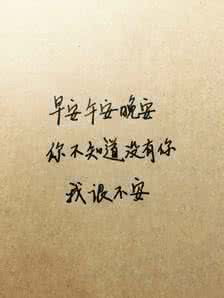 早安午安晚安
你不知道没有你
我很不安